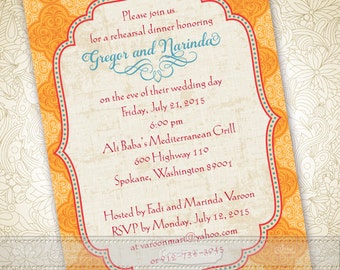 Please join us
for a rehearsal dinner honoring
Gregor and Narinda
on the eve of their wedding day
Friday, July 21, 2015
6:00 pm
Ali Baba's Mediterranean Grill
600 Highway 110
Spokane, Washington 89001
Hosted by Fadi and Narinda Varoon
RSVP by Monday, July 12, 2015
at
or